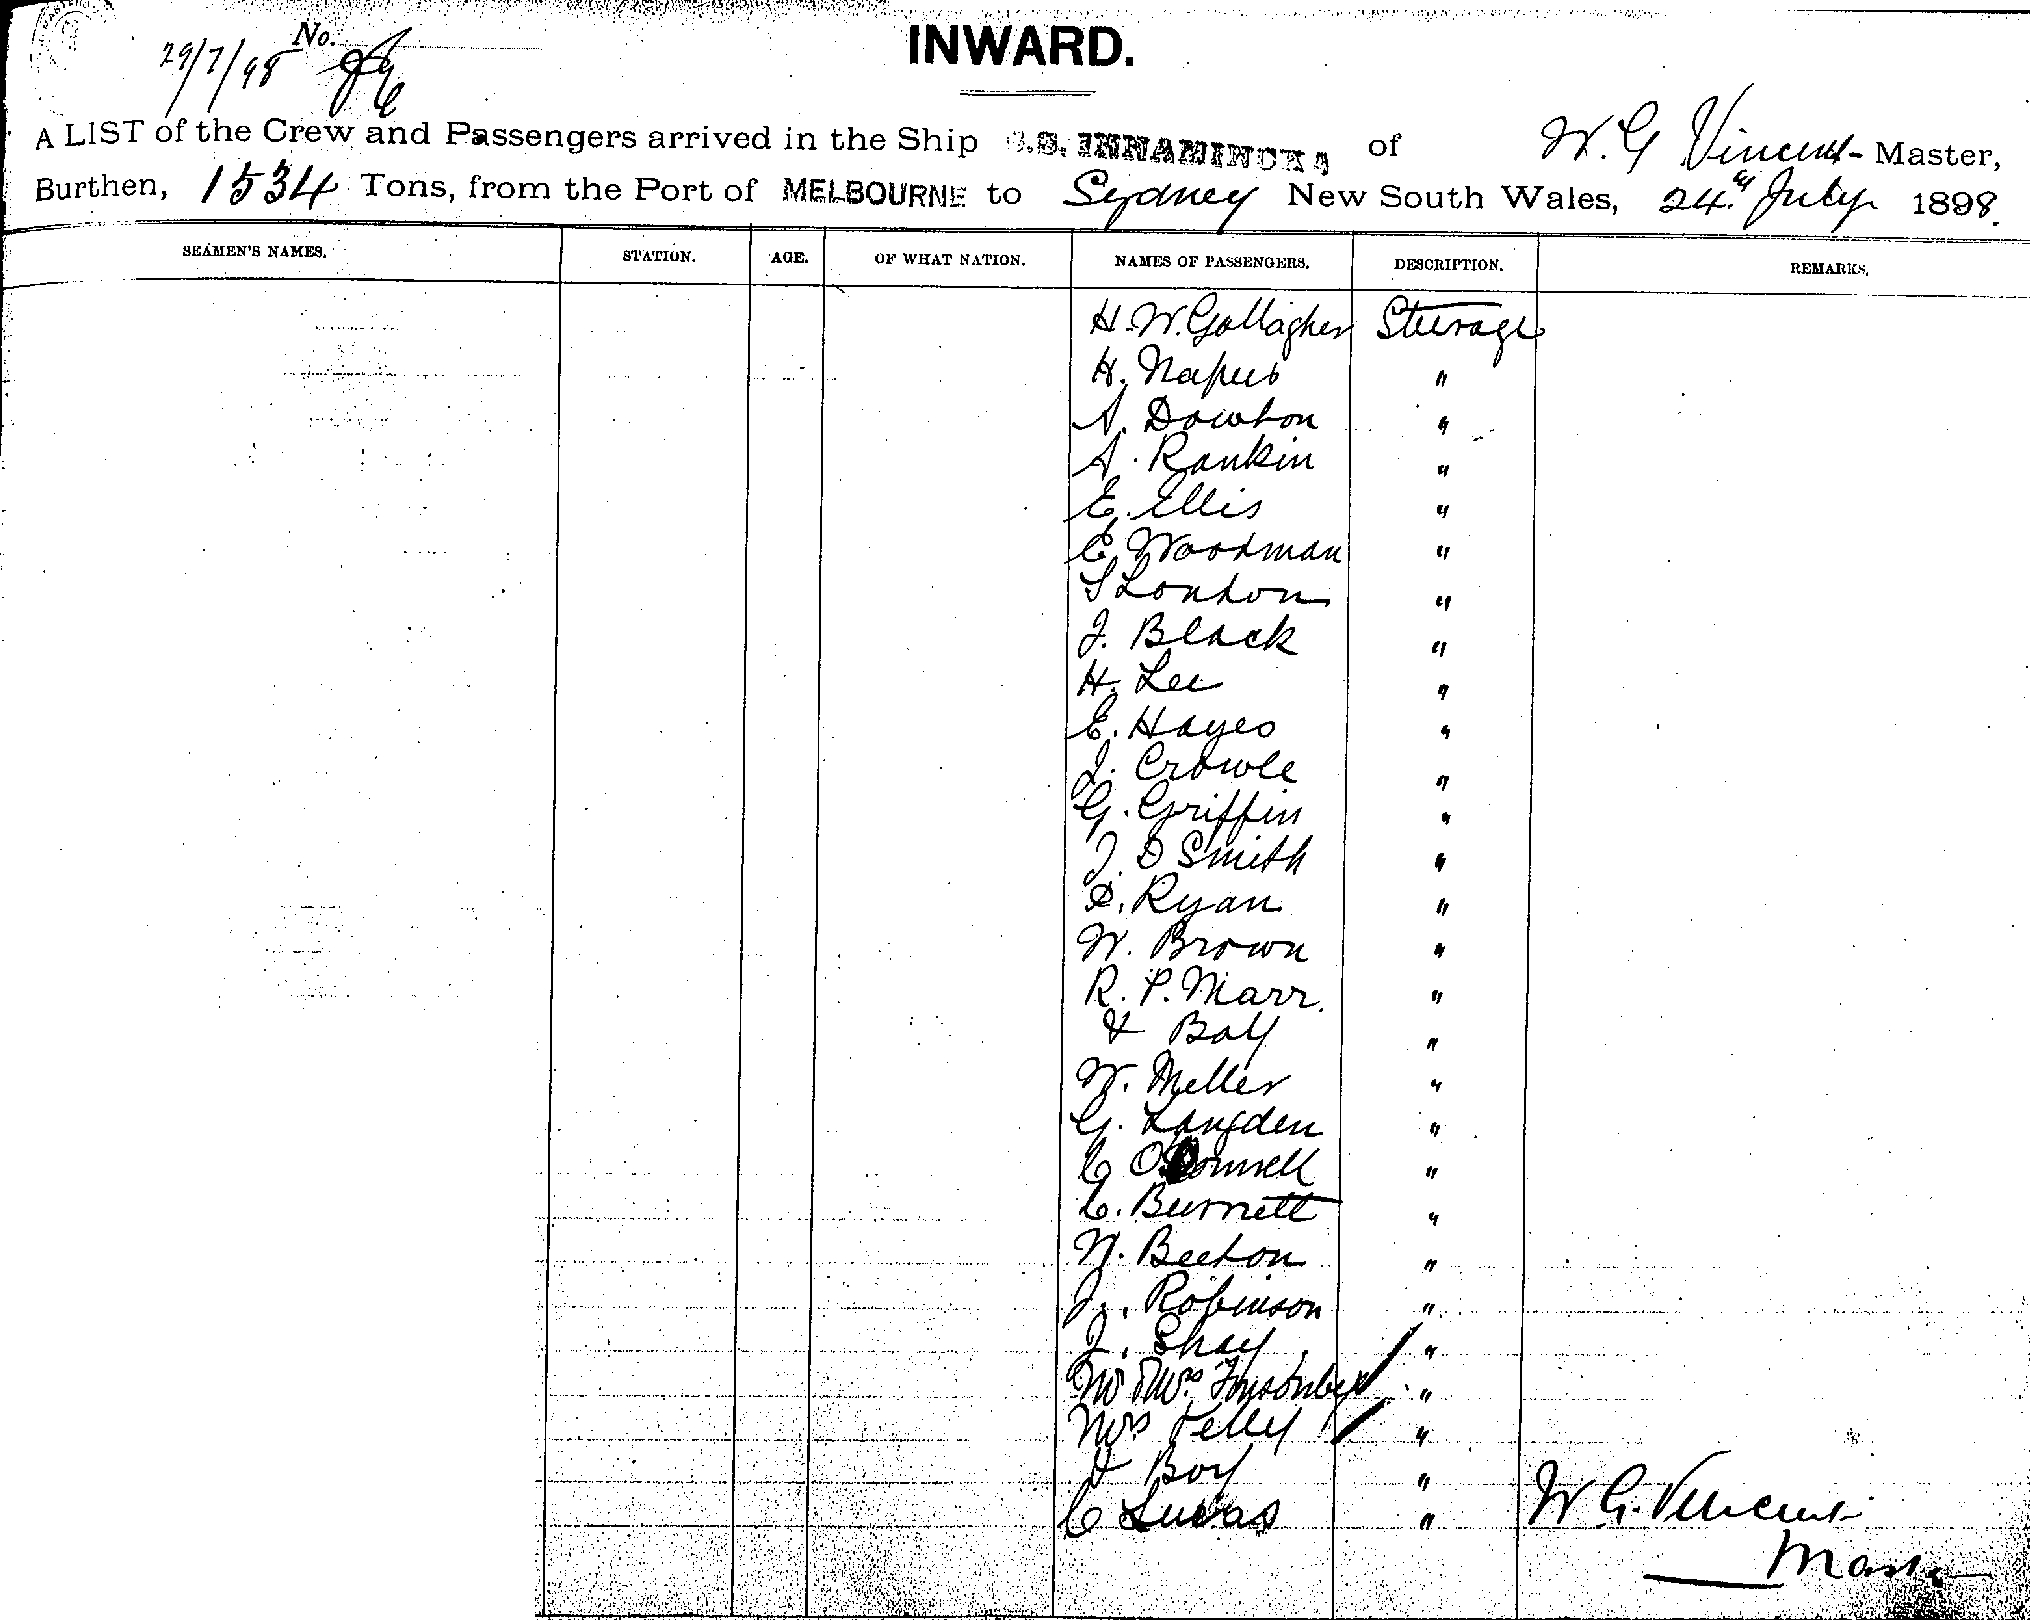 29/7/98 No.
INWARD.
A LIST of the Crew and Passengers arrived in the Ship S.S. INNAMINCKA of W. G Vincent - Master,
Burthen, 1534 Tons, from the Port of MELBOURNE to Sydney New South Wales, 24th July 1898.
SEAMEN'S NAMES. STATION. AGE. OF WHAT NATION. NAMES OF PASSENGERS. DESCRIPTION. REMARKS.
H. W. Gallagher Steerage
H. Napier "
A. Dowton "
A. Rankin "
E. Ellis "
E. Woodman "
S London "
J. Black "
H. Lee "
E. Hayes "
J. Crowle "
G. Griffin "
J. D Smith "
D. Ryan "
W. Brown "
R. P. Marr. "
& Boy "
W. Meller "
G. Langden "
C O'Donnell "
C. Burnett "
W. Beeton "
J. Robinson "
J. Shay "
Mr & Mrs "
Mrs Kelly "
& Boy "
C Lucas "
W G. Vincent
Master